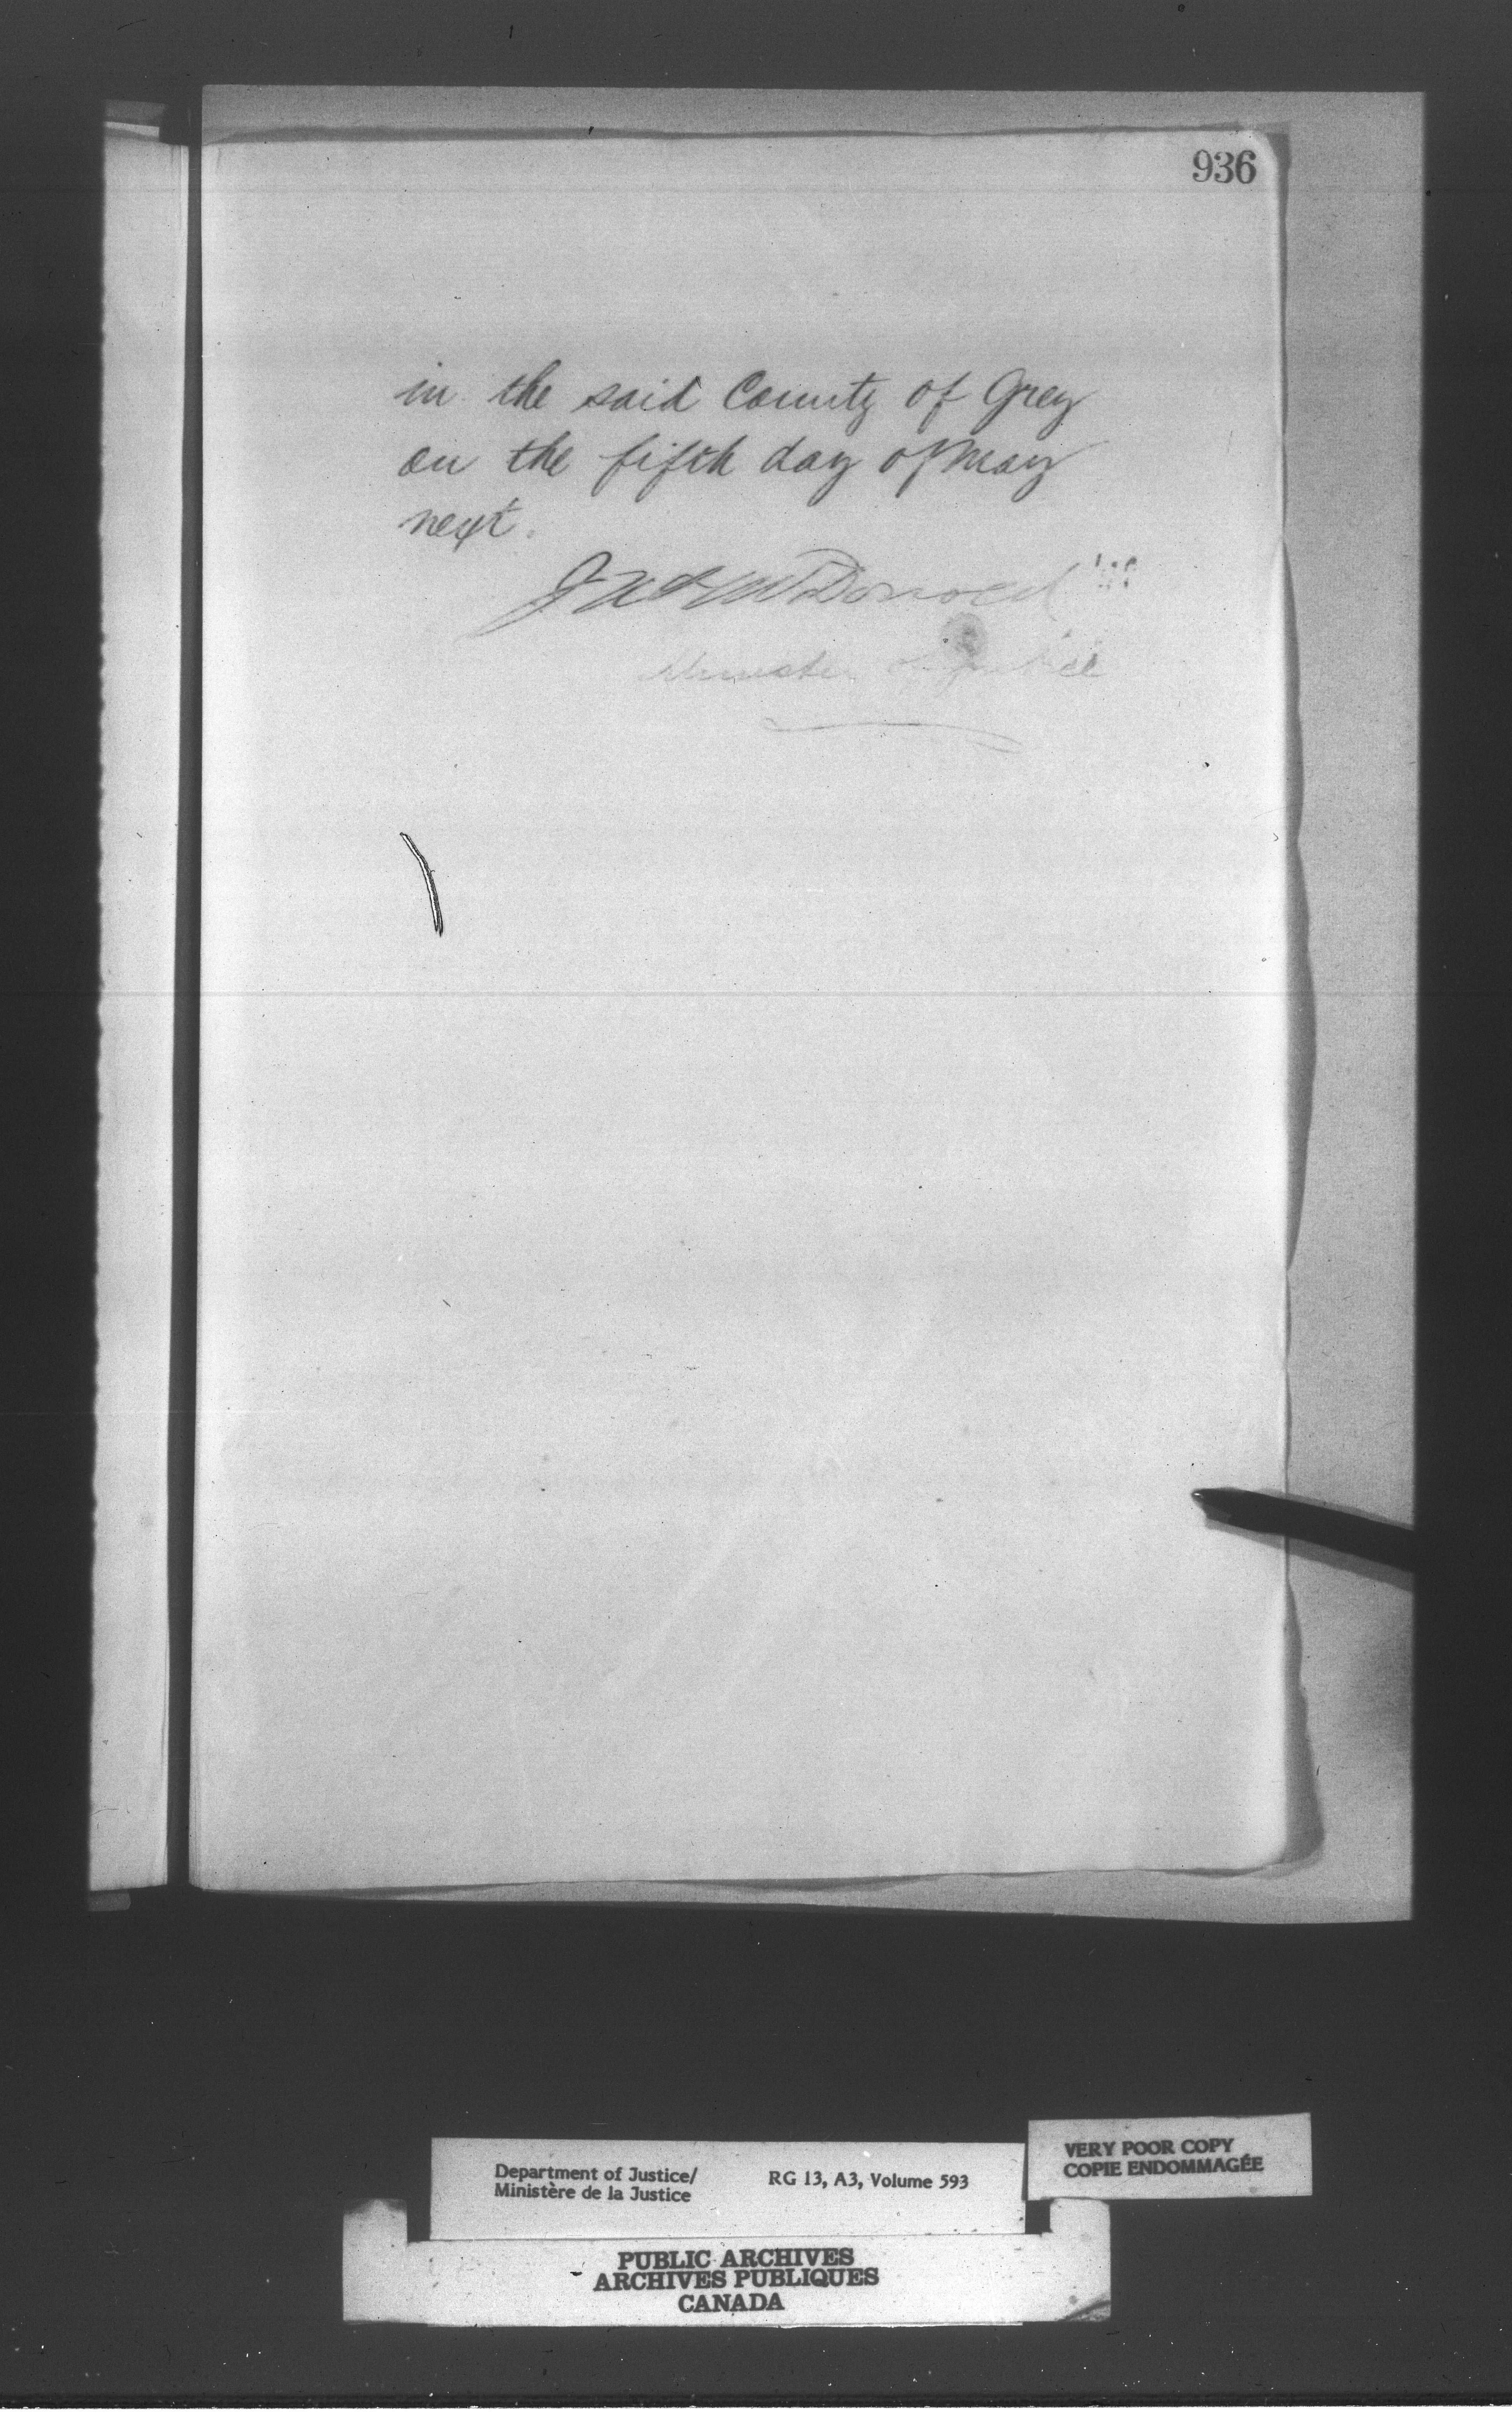 936
in the said County of Grey
on the fifth day of May
next.
McDonald
Minister of Justice
Department of Justice/
Ministère de la Justice
RG 13, A3, Volume 593
VERY POOR COPY
COPIE ENDOMMAGÉE
PUBLIC ARCHIVES
ARCHIVES PUBLIQUES
CANADA